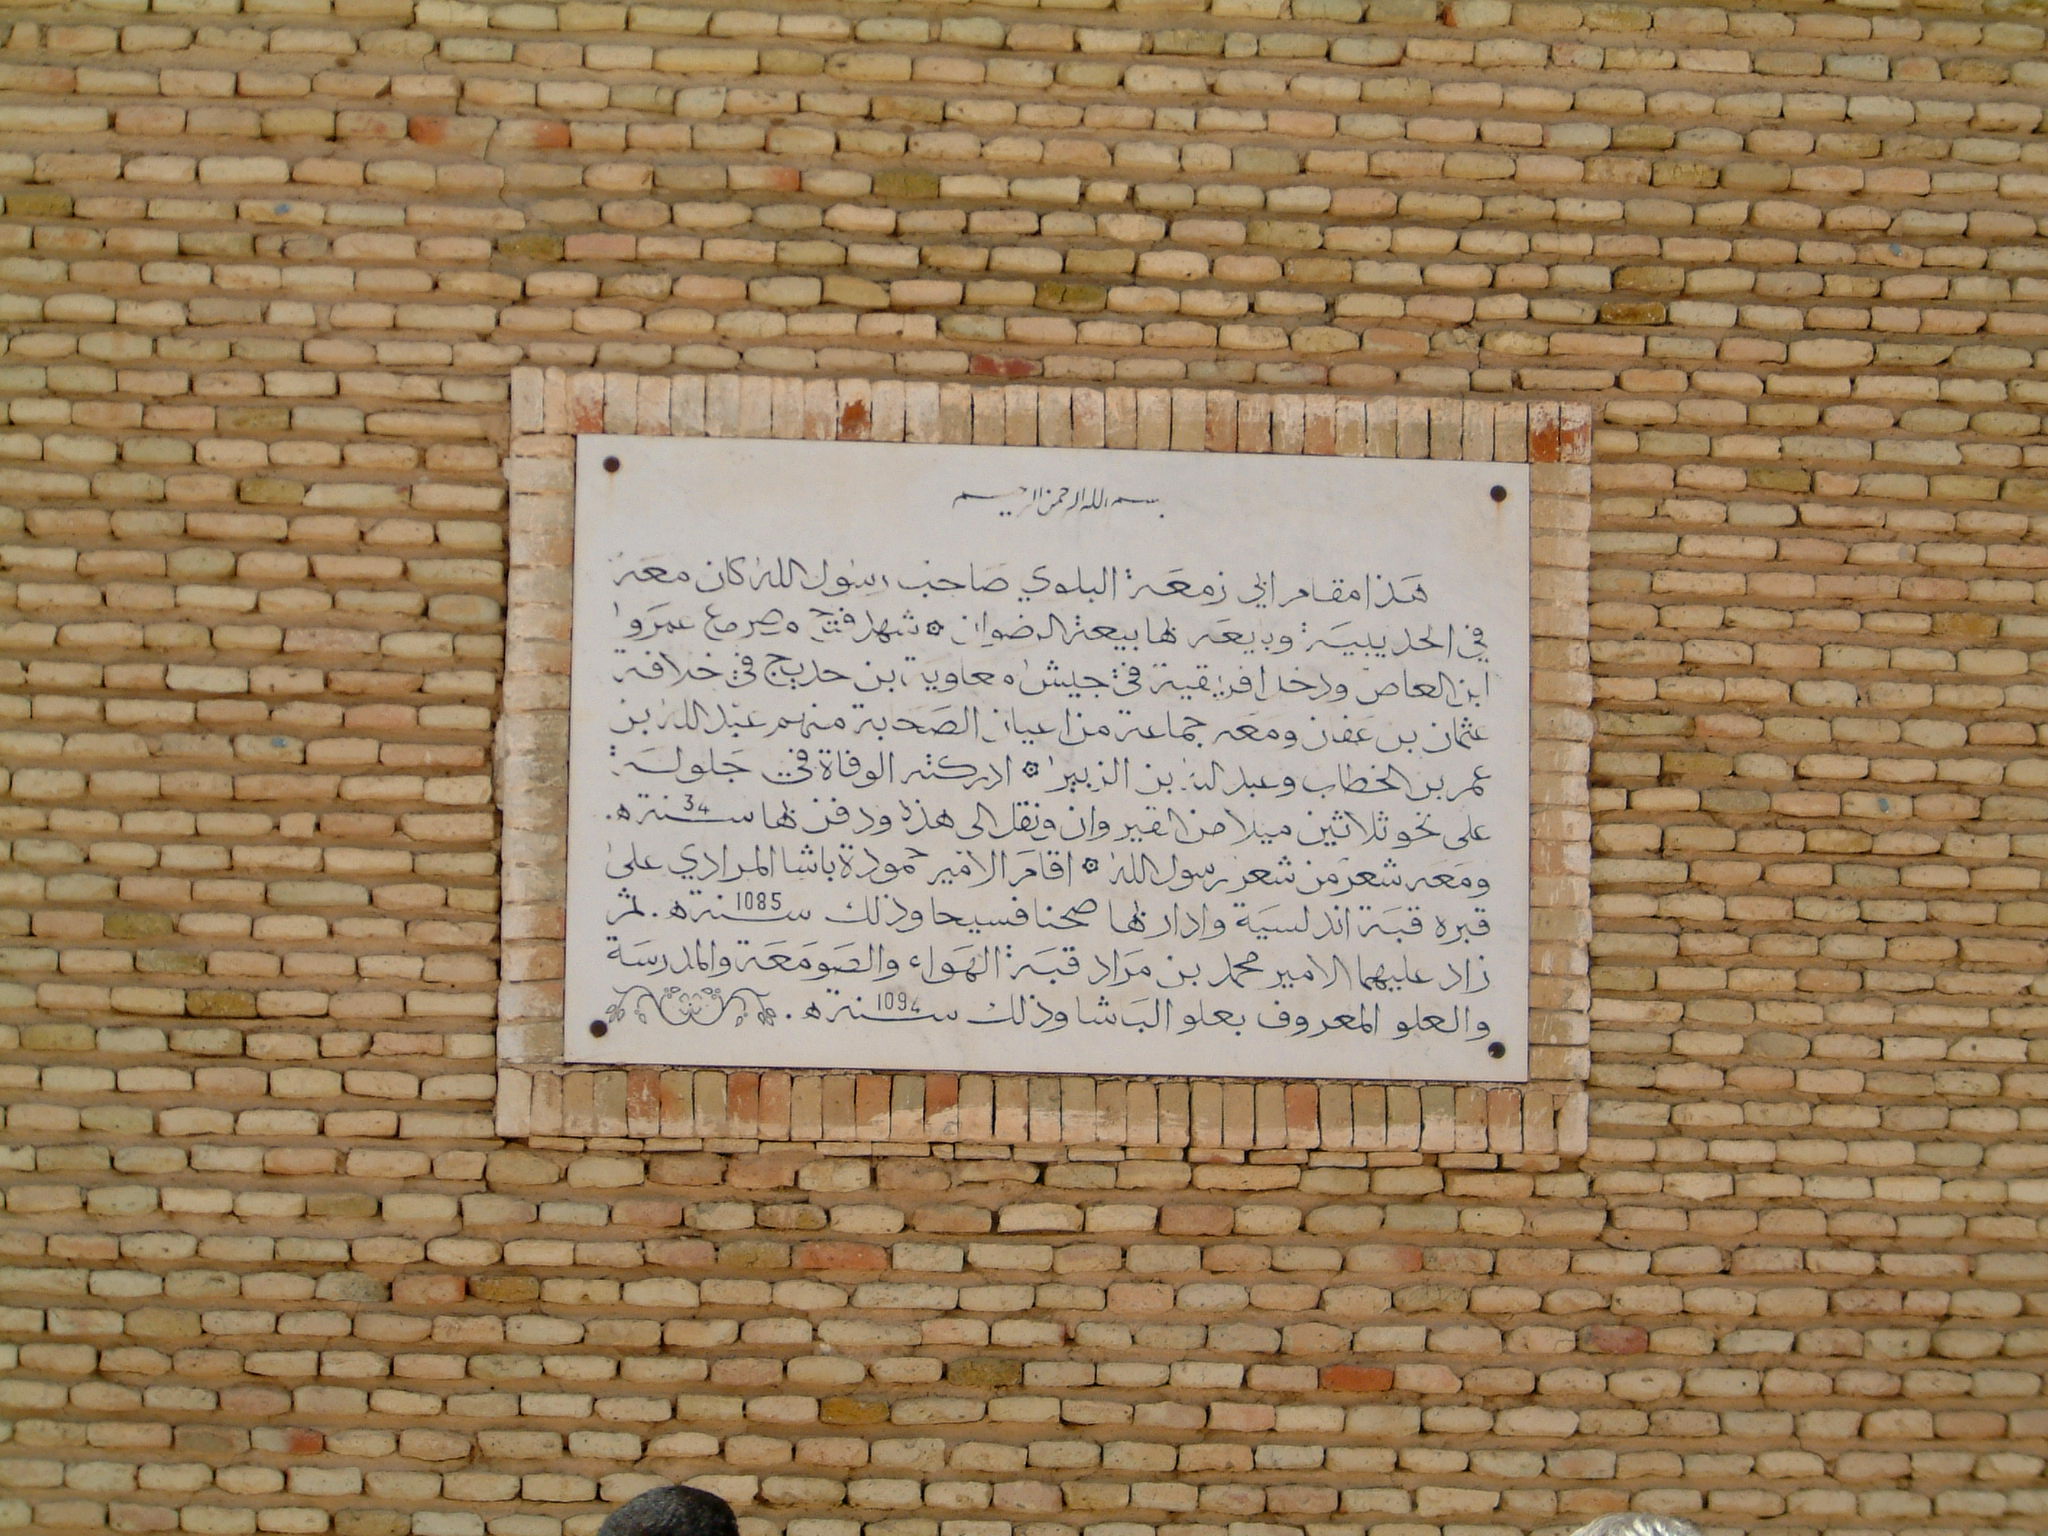 بسم الله الرحمن الرحيم
هَذا مقام ابي زمعَة البلوي صَاحب رسول الله كان معَه
في الحديبيَة وبايعَه بها بيعة الرضوان شهد فتح مصر مع عمرَوا
ابن العاص ودخل افريقية في جيش معاوية بن حديج في خلافة
عثمان بن عَفان ومعَه جماعة من اعيان الصَحابة منهم عبد الله بن
عمر بن الخطاب وعبد الله بن الزبير ادركته الوفاة في جَلولَة
على نحو ثلاثين ميلا من القيروان ونقل الى هذه ودفن بها سنة 34 ه.
ومَعَه شعر من شعر رسول الله اقامَ الامير حمودة باشا المرادي على
قبره قبَة اندلسيَة وادار بها صحنا فسيحا وذلك سنة 1085 ه. ثم
زاد عليهما الامير محمد بن مرَاد قبَة الهَواء والصَومَعَة والمدرسَة
والعلو المعروف بعلو البَاشا وذلك سنة 1094 ه.